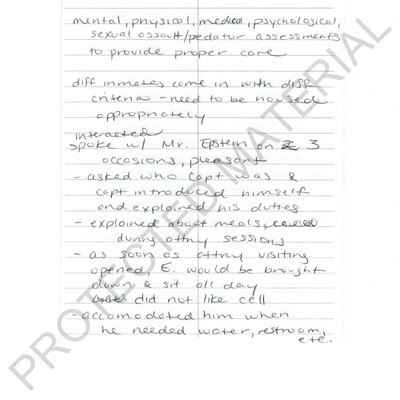 mental, physical, medical, psychological,
sexual assault/predator assessments
to provide proper care
diff inmates come in with diff
criteria - need to be housed
appropriately
interacted
spoke w/ Mr. Epstein on 3
occasions, pleasant
- asked who Capt was &
capt introduced himself
and explained his duties
- explained about meals,
during attny sessions
- as soon as attny visiting
opened, E. would be brought
down & sit all day
did not like cell
- accomodated him when
he needed water, restroom,
etc.
PROTECTED MATERIAL